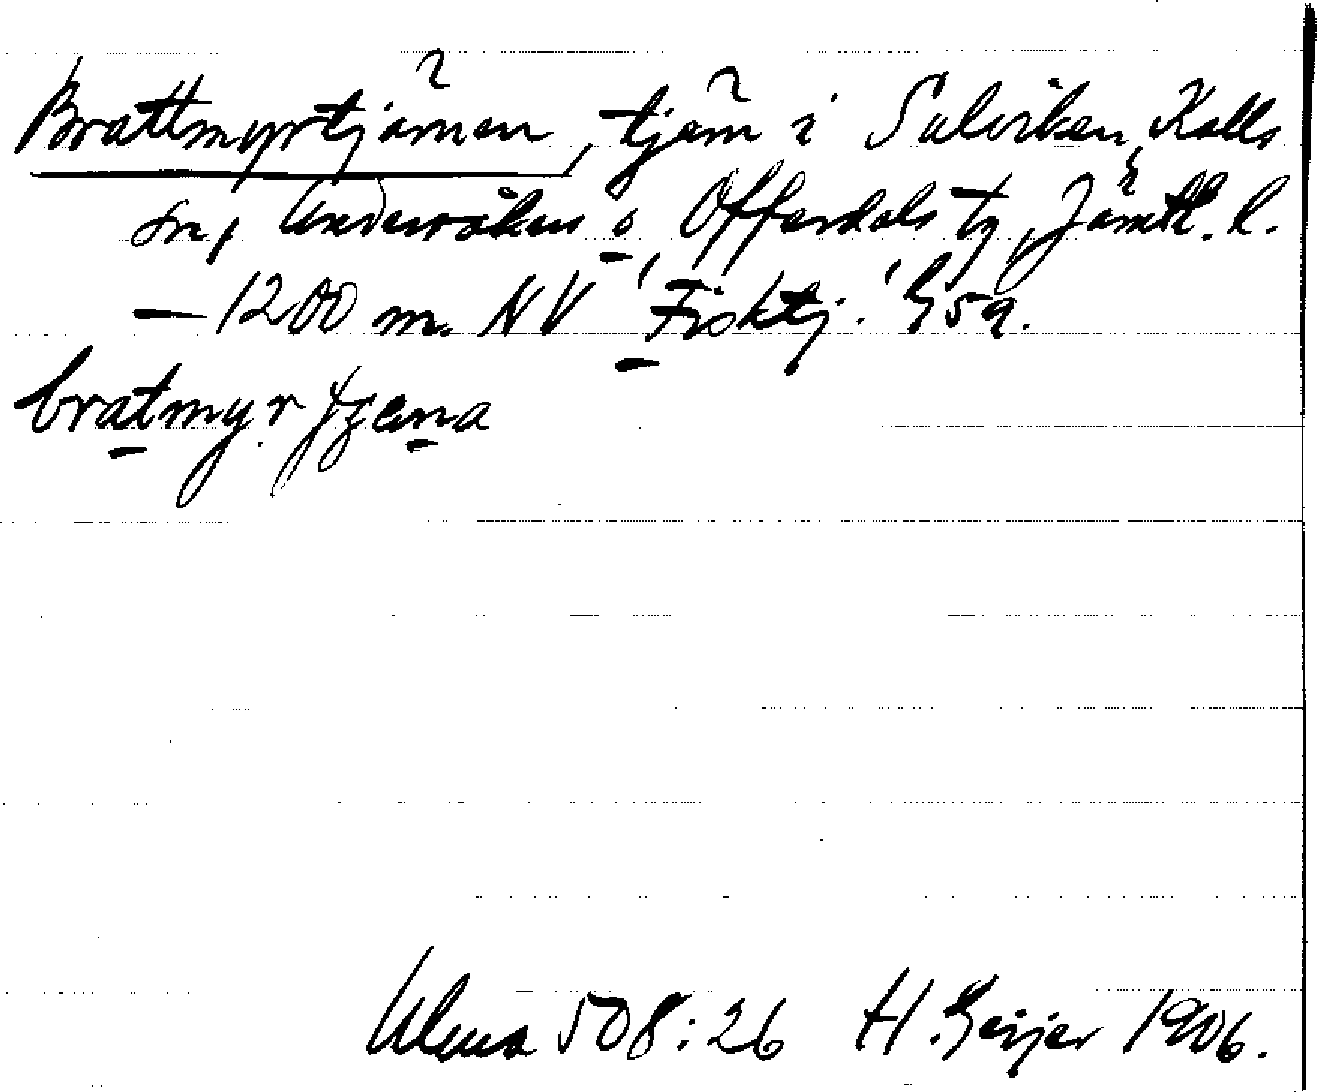 Brattmyrtjärnen, tjärn i Sulviken, Kalls
sn, Undersåkers o. Offerdals tg, Jämtl. l.
— 1200 m. NV 'Fisktj.' G59.
bratmyr
Ulma 508:26 H. Geijer 1906.